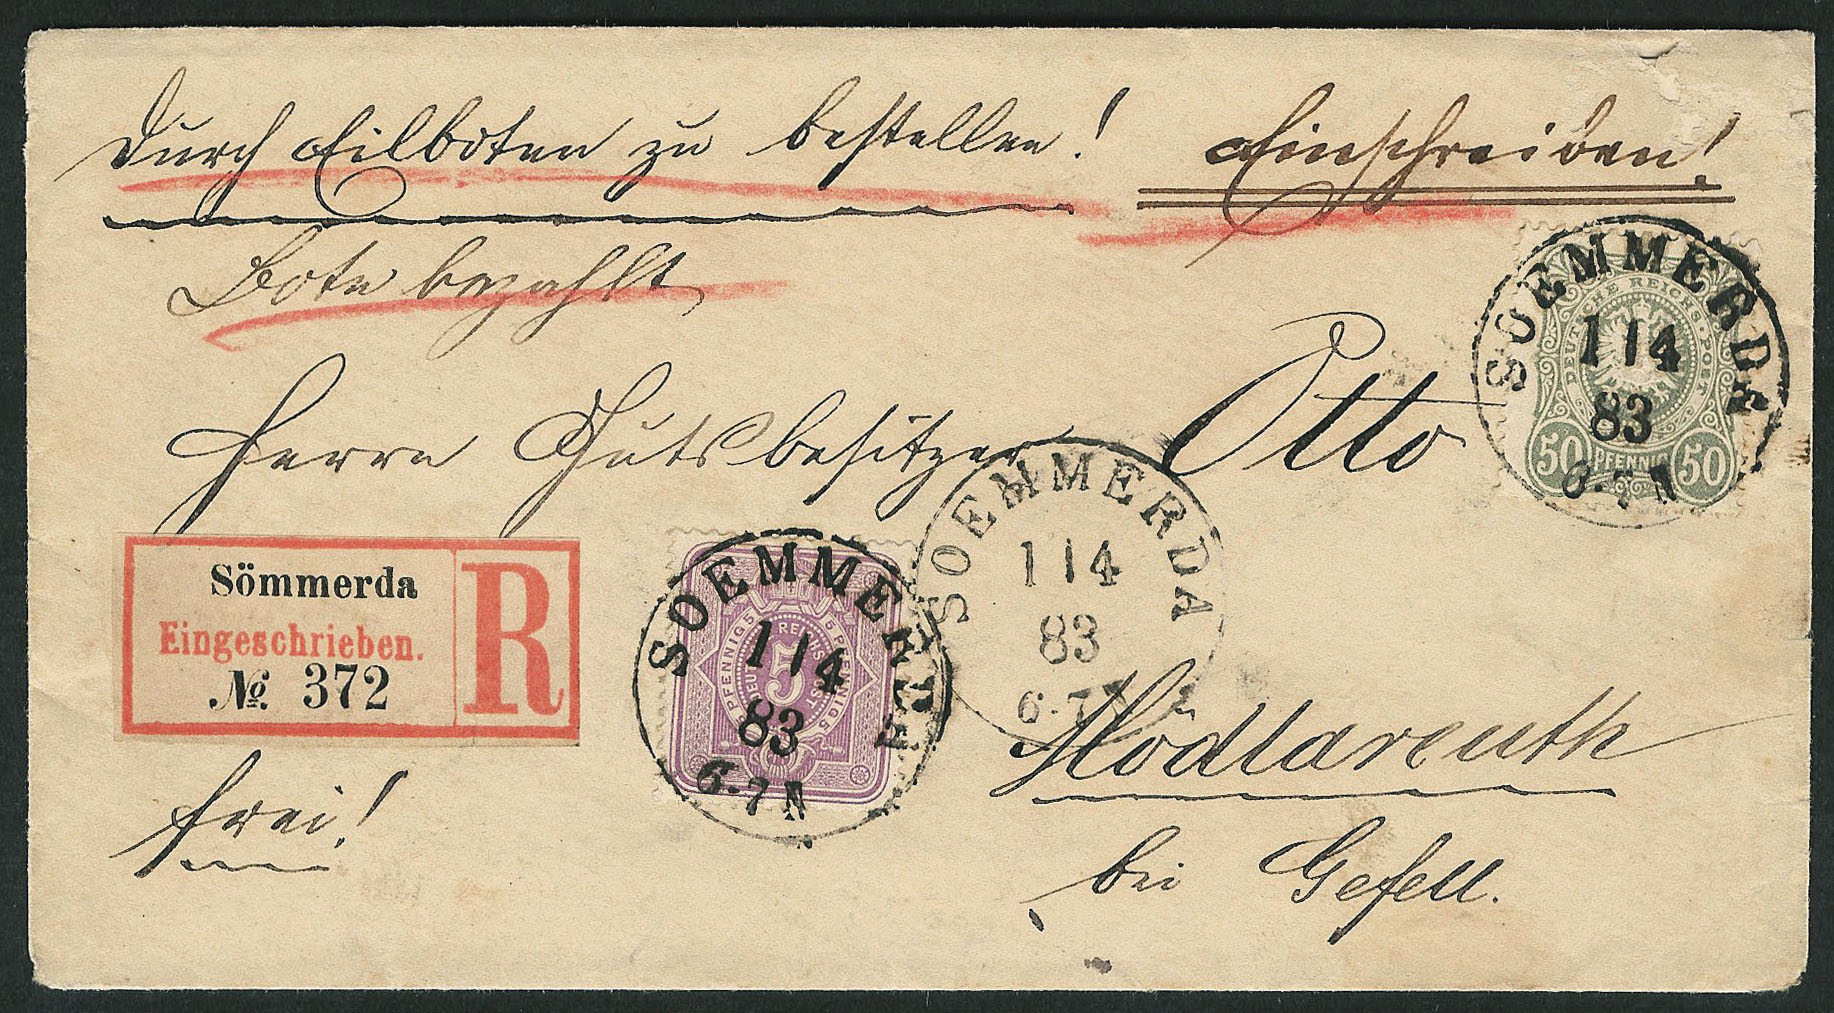 Durch Eilboten zu bestellen! Einschreiben!
Bote bezahlt
SOEMMERDA
1 | 4
83
6-7 N
DEUTSCHE REICHS-POST
50 PFENNIG 50
Herrn Gutsbesitzer Otto
SOEMMERDA
1 | 4
83
6-7 N
Sömmerda
Eingeschrieben.
No. 372
R
SOEMMERDA
1 | 4
83
6-7 N
5 PFENNIG 5
5
Modlareuth
frei!
bei Gefell.